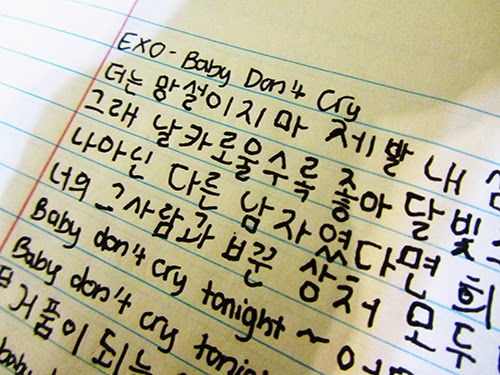 EXO - Baby Don't Cry
더는 망설이지마 제발 내
그래 날카로울수록 좋아 달빛
나아닌 다른 남자였다면 희
너의 그사람과 바꾼 상처 모두
Baby don't cry tonight ~
Baby don't cry tonight
거품이 되는
baby